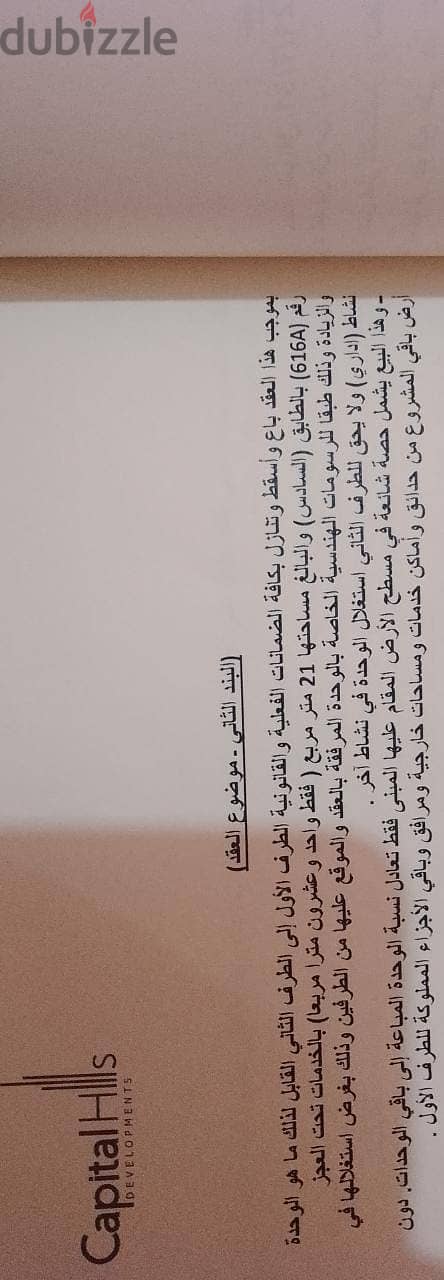 dubizzle
Capital Hills
DEVELOPMENTS
(البند الثاني - موضوع العقد)
بموجب هذا العقد باع وأسقط وتنازل بكافة الضمانات الفعلية والقانونية الطرف الأول إلى الطرف الثاني القابل لذلك ما هو الوحدة
رقم (616A) بالطابق (السادس) والبالغ مساحتها 21 متر مربع ( فقط واحد وعشرون مترا مربعا) بالخدمات تحت العجز
والزيادة وذلك طبقا للرسومات الهندسية الخاصة بالوحدة المرفقة بالعقد والموقع عليها من الطرفين وذلك بغرض استغلالها في
نشاط (اداري) ولا يحق للطرف الثاني استغلال الوحدة في نشاط آخر .
- وهذا البيع يشمل حصة شائعة في مسطح الأرض المقام عليها المبنى فقط تعادل نسبة الوحدة المباعة إلى باقي الوحدات. دون
أرض باقي المشروع من حدائق وأماكن خدمات ومساحات خارجية ومرافق وباقي الأجزاء المملوكة للطرف الأول .